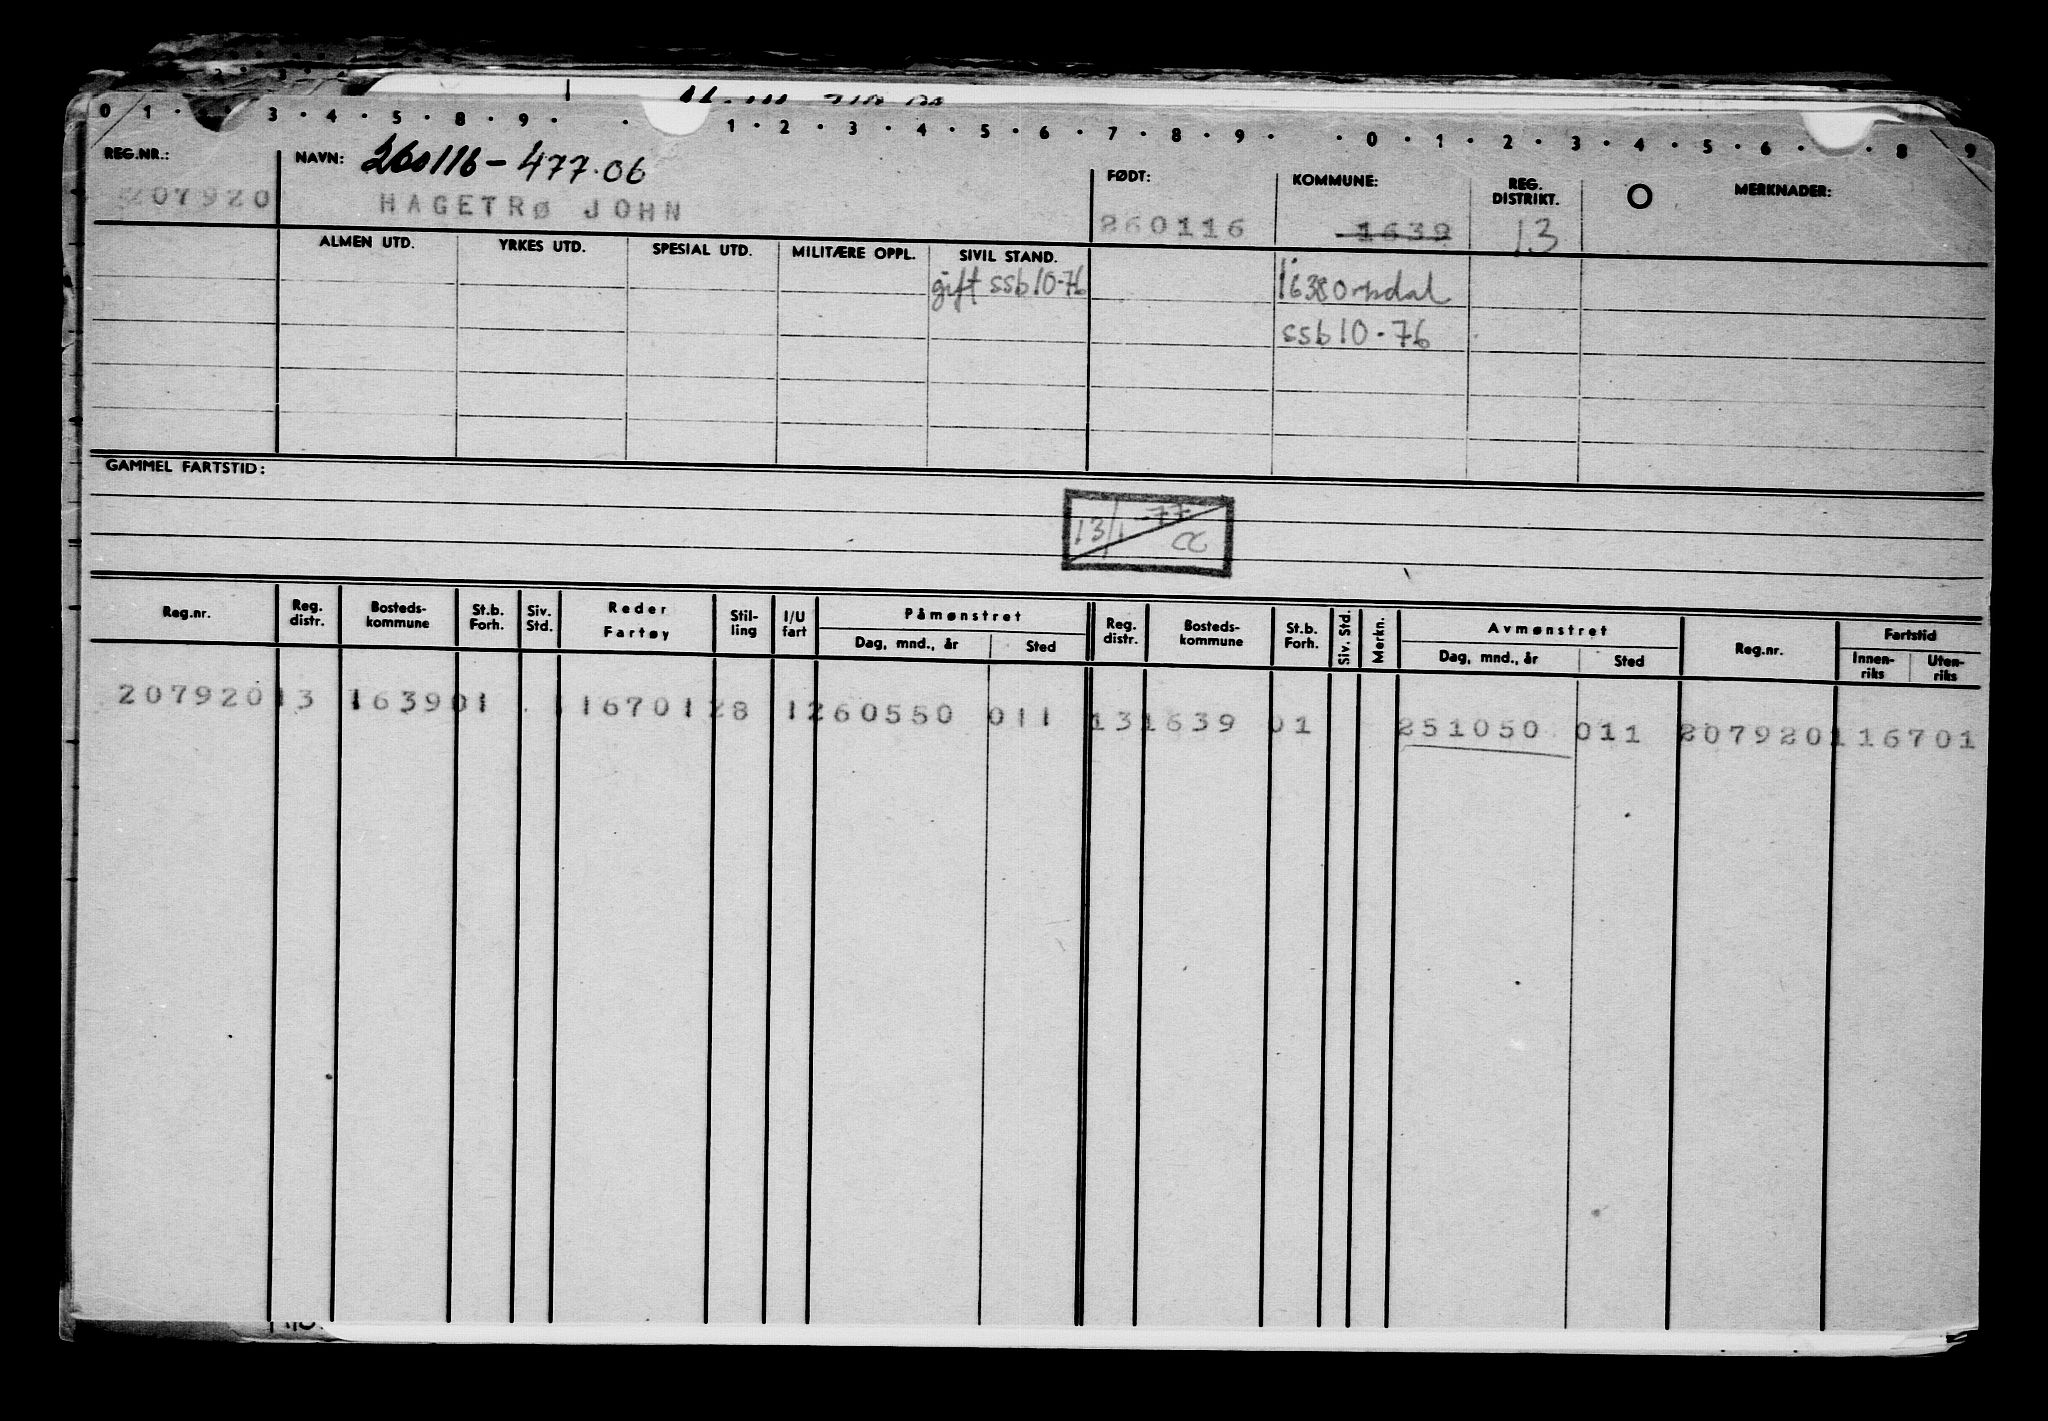 0 1 · 3 · 4 · 5 · 8 · 9 · · 1 · 2 · 3 · 4 · 5 · 6 · 7 · 8 · 9 · · 0 · 1 · 2 · 3 · 4 · 5 · 6 · 8 · 9
REG.NR.: NAVN: 260116-477.06 FØDT: KOMMUNE: REG. DISTRIKT. MERKNADER:
207920 HAGETRØ JOHN 260116 1639 13
ALMEN UTD. YRKES UTD. SPESIAL UTD. MILITÆRE OPPL. SIVIL STAND.
gift ssb 10-76 1638 Orkdal
ssb 10-76
GAMMEL FARTSTID:
13/1 -77
Reg.nr. Reg. distr. Bosteds-kommune St.b. Forh. Siv. Std. Reder Fartøy Stil-ling I/U fart Påmønstret Reg. distr. Bosteds-kommune St.b. Forh. Siv. Std. Merkn. Avmønstret Reg.nr. Fartstid
Dag, mnd., år Sted Dag, mnd., år Sted Innen-riks Uten-riks
207920 13 1639 01 11670128 1 260550 011 13 1639 01 251050 011 207920 1 16701